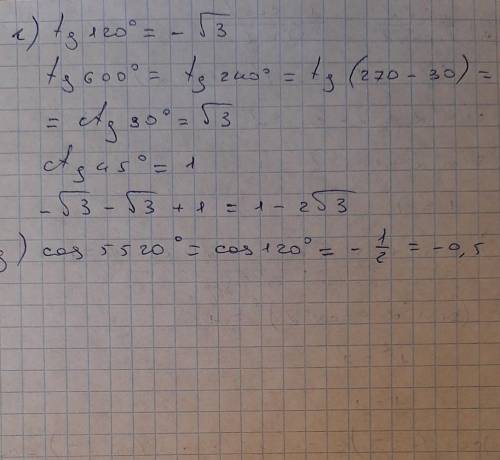 1) tg 120° = - √3
tg 600° = tg 240° = tg (270 - 30) =
= ctg 30° = √3
ctg 45° = 1
-√3 - √3 + 1 = 1 - 2√3
) cos 5520° = cos 120° = - 1/2 = -0,5